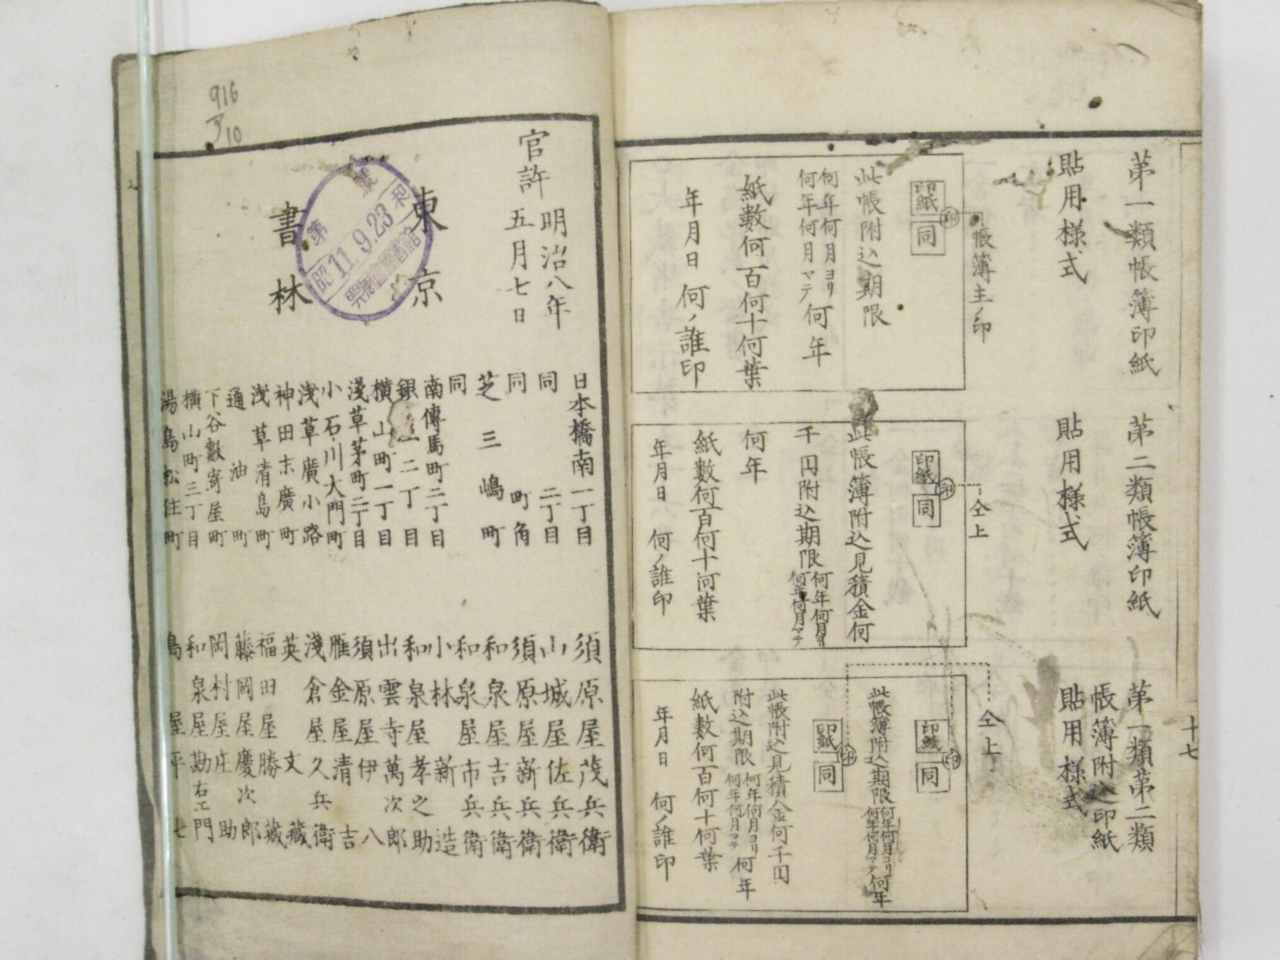 第一類帳簿印紙
貼用様式
帳簿主ノ印
印紙
同
印
此帳附込期限
何年何月ヨリ
何年何月マテ
何年
紙數何百何十何葉
年月日 何ノ誰印
第二類帳簿印紙
貼用様式
仝上
印紙
同
印
此帳簿附込見積金何
千円附込期限
何年何月ヨリ
何年何月マテ
何年
紙數何百何十何葉
年月日 何ノ誰印
第一類第二類
帳簿附込印紙
貼用様式
仝上
印紙
同
印
此帳簿附込期限
何年何月ヨリ
何年何月マテ
何年
印紙
同
印
此帳附込見積金何千円
附込期限
何年何月ヨリ
何年何月マテ
何年
紙數何百何十何葉
年月日 何ノ誰印
十七
916
10
官許
明治八年
五月七日
東京
書林
昭和
11.9.23
第
號
日本橋南一丁目 須原屋茂兵衛
同 二丁目 山城屋佐兵衛
同 町角 須原屋新兵衛
芝三嶋町 和泉屋吉兵衛
同 和泉屋市兵衛
南傳馬町二丁目 小林新造
銀座二丁目 和泉屋孝之助
横山町一丁目 出雲寺萬次郎
淺草茅町二丁目 須原屋伊八
小石川大門町 雁金屋清吉
浅草廣小路 淺倉屋久兵衛
神田末廣町 英文藏
浅草清島町 福田屋勝藏
通油町 藤岡屋慶次郎
下谷數寄屋町 岡村屋庄助
横山町三丁目 和泉屋勘右エ門
湯島松住町 島屋平七